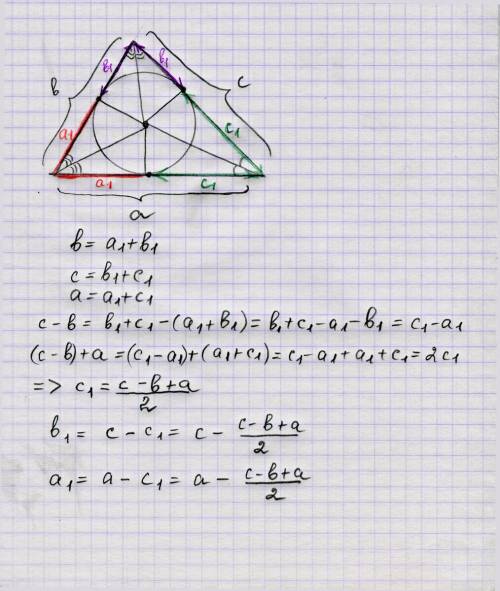 в₁ в₁
в c
a₁ c₁
a₁ c₁
a
в = a₁+в₁
c = в₁+c₁
a = a₁+c₁
c-в = в₁+c₁-(a₁+в₁)= в₁+c₁-a₁-в₁ = c₁-a₁
(c-в)+a =(c₁-a₁)+(a₁+c₁)=c₁-a₁+a₁+c₁=2c₁
=> c₁= (c-в+a)/2
в₁ = c - c₁= c - (c-в+a)/2
a₁= a - c₁= a - (c-в+a)/2